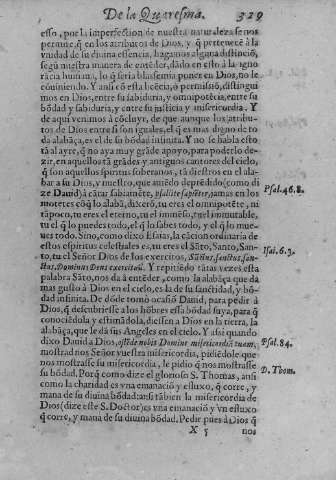 De la Quaresma. 329
esso, por la imperfection de nuestra naturaleza se nos
permite, q̃ en los atributos de Dios, y q̃ pertenecẽ à la
vnidad de su diuina essencia, hagamos alguna distinciõ,
segũ nuestra manera de entẽder, dãdo en esto à la igno
rãcia humana, lo q̃ seria blasfemia poner en Dios, no le
cõuiniendo. Y ansi cõ esta licẽcia, ò permissiõ, distingui
mos en Dios, entre su sabiduria, y omnipotẽcia, entre su
bõdad y sabiduria, y entre su justicia y misericordia. Y
de aqui venimos à cõcluyr, de que aunque los atributos
de Dios entre si son iguales, el q̃ es mas digno de to
da alabãça, es el de su bõdad infinita. Y no se habla esto
tã al ayre, q̃ no aya muy grãde apoyo, para poderlo de-
zir, en aquellos tã grãdes y antiguos cantores del cielo,
q̃ son aquellos spiritus soberanos, tã diestros en el ala-
bar a su Dios, y nuestro, que auiẽdo deprẽdido (como di
ze Dauid) à cãtar sabiamẽte, psallite sapiẽter, jamas en los
Psal. 46.8.
motetes cõ q̃ lo alabã, dixerõ, tu eres el omnipotẽte, ni
tãpoco, tu eres el eterno, tu el immẽso, tu el immutable,
tu el q̃ lo puedes todo, el q̃ lo sabes todo, y el q̃ lo mue-
ues todo. Sino, como dixo Esaias, la cãcion ordinaria de
estos espiritus celestiales es, tu eres el Sãto, Santo, San-
to, tu el Señor Dios de los exercitos, Sãctus, sanctus, san-
Isai. 6.3.
ctus, Dominus Deus exercituũ. Y repitiẽdo tãtas vezes esta
palabra Santo, nos dã à entẽder, como la alabãça que dà
mas gusto à Dios en el cielo, es la de su sanctidad, y bõ-
dad infinita. De dõde tomò ocasiõ Dauid, para pedir à
Dios, q̃ descubriesse a los hõbres essa bõdad suya, para q̃
conociẽdola y estimãdola, diessen à Dios en la tierra, la
alabãça, que le dã sus Angeles en el cielo. Y assi quando
dixo Dauid a Dios, ostẽde nobis Domine misericordiã tuam,
Psal. 84.
mostradnos Señor vuestra misericordia, pidiẽdole que
nos mostrasse su misericordia, le pidio q̃ nos mostrasse
su bõdad. Porq̃ como dize el glorioso S. Thomas, ansi
D. Thom.
como la charidad es vna emanaciõ y efluxo, q̃ corre, y
mana de su diuina bõdad: ansi tãbien la misericordia de
Dios (dize este S. Doctor) es vna emanaciõ y vn efluxo
q̃ corre, y mana de su diuina bõdad. Pedir pues à Dios q̃
X 5 nos